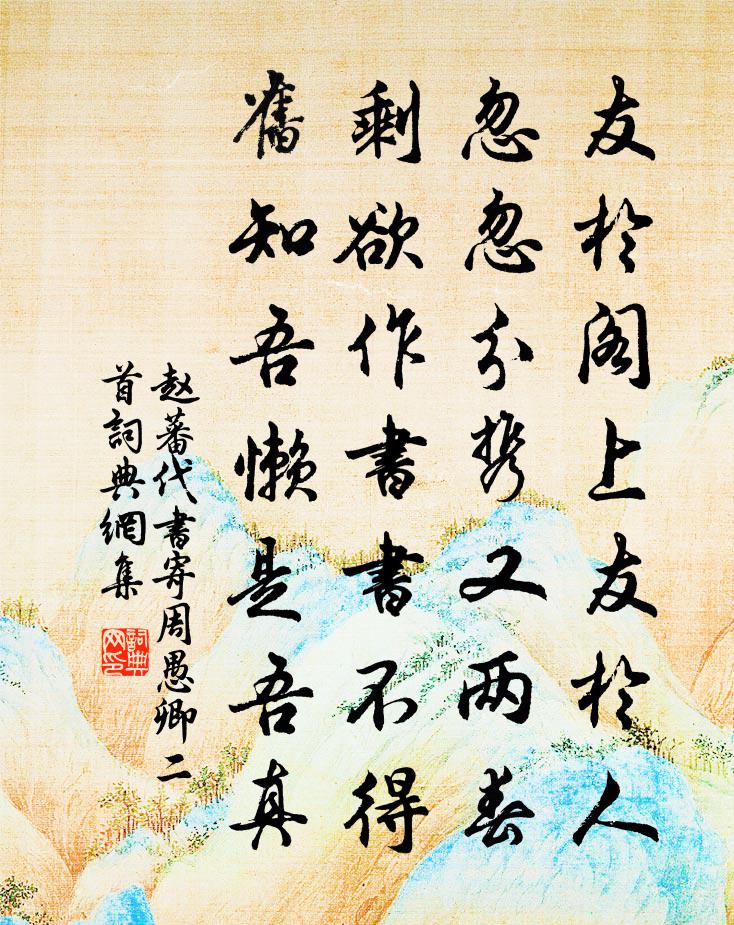 友於阁上友於人
忽忽分携又两春
剩欲作書書不得
舊知吾懒是吾真
赵蕃代書寄周愚卿二
首詞典網集
詞典
网印